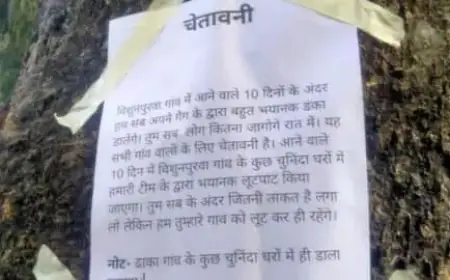 चेतावनी
विशुनपुरवा गांव में आने वाले 10 दिनों के अंदर
हम सब अपने गैंग के द्वारा बहुत भयानक डंका
डालेंगे। तुम सब लोग कितना जागोगे रात में। यह
सभी गांव वालों के लिए चेतावनी है। आने वाले
10 दिन में विशुनपुरवा गांव के कुछ चुनिंदा घरों में
हमारी टीम के द्वारा भयानक लूटपाट किया
जाएगा। तुम सब के अंदर जितनी ताकत है लगा
लो लेकिन हम तुम्हारे गांव को लूट कर ही रहेंगे।
नोट- डाका गांव के कुछ चुनिंदा घरों में ही डाला